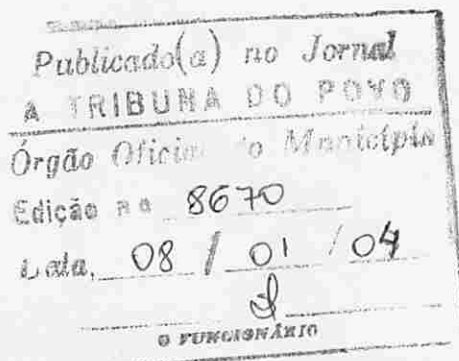 Publicado(a) no Jornal
A TRIBUNA DO POVO
Órgão Oficial do Município
Edição nº 8670
Data, 08 / 01 / 04
O FUNCIONÁRIO